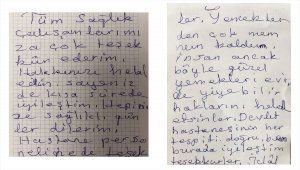 Tüm Sağlık
Çalışanlarımı
za çok teşek
kür ederim.
Hakkınızı helal
edin. sayeniz
de kısa sürede
iyileştim. Hepini
ze sağlıklı gün
ler dilerim.
Hastane perso
neline de teşek
ler. Yemekler
den çok mem
nun kaldım,
insan ancak
böyle güzel
yemekleri evi
de yiyebilir
haklarını helal
etsinler. Devlet
hastanesinin her
tespiti doğru, ben
burada iyileştim
teşekkürler.